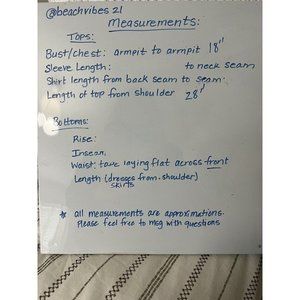 @beachvibes 21
Measurements:
Tops:
Bust/chest: armpit to armpit 18"
Sleeve Length: to neck seam
Shirt length from back seam to seam:
Length of top from shoulder 28"
Bottoms:
Rise:
Inseam:
Waist: take laying flat across front
Length (dresses from shoulder)
skirts
* all measurements are approximations.
Please feel free to msg with questions